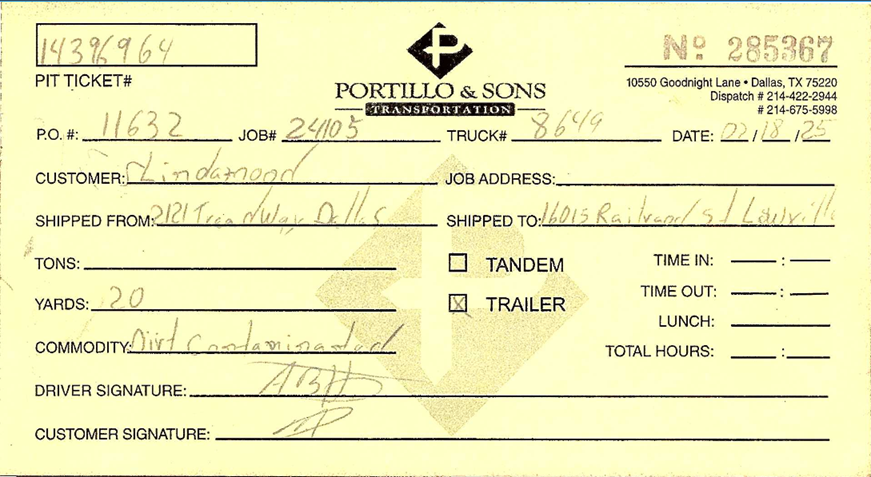 14396964
PIT TICKET#
PORTILLO & SONS
TRANSPORTATION
Nº 285367
10550 Goodnight Lane • Dallas, TX 75220
Dispatch # 214-422-2944
# 214-675-5998
P.O. #: 11632 JOB# 24105 TRUCK# 8649 DATE: 02/18/25
CUSTOMER: Lindamood JOB ADDRESS:
SHIPPED FROM: 2121 Dallas SHIPPED TO: 1601 S Railroad st
TONS: TANDEM TIME IN: :
YARDS: 20 X TRAILER TIME OUT: :
LUNCH:
COMMODITY: Dirt Contaminated TOTAL HOURS: :
DRIVER SIGNATURE:
CUSTOMER SIGNATURE: